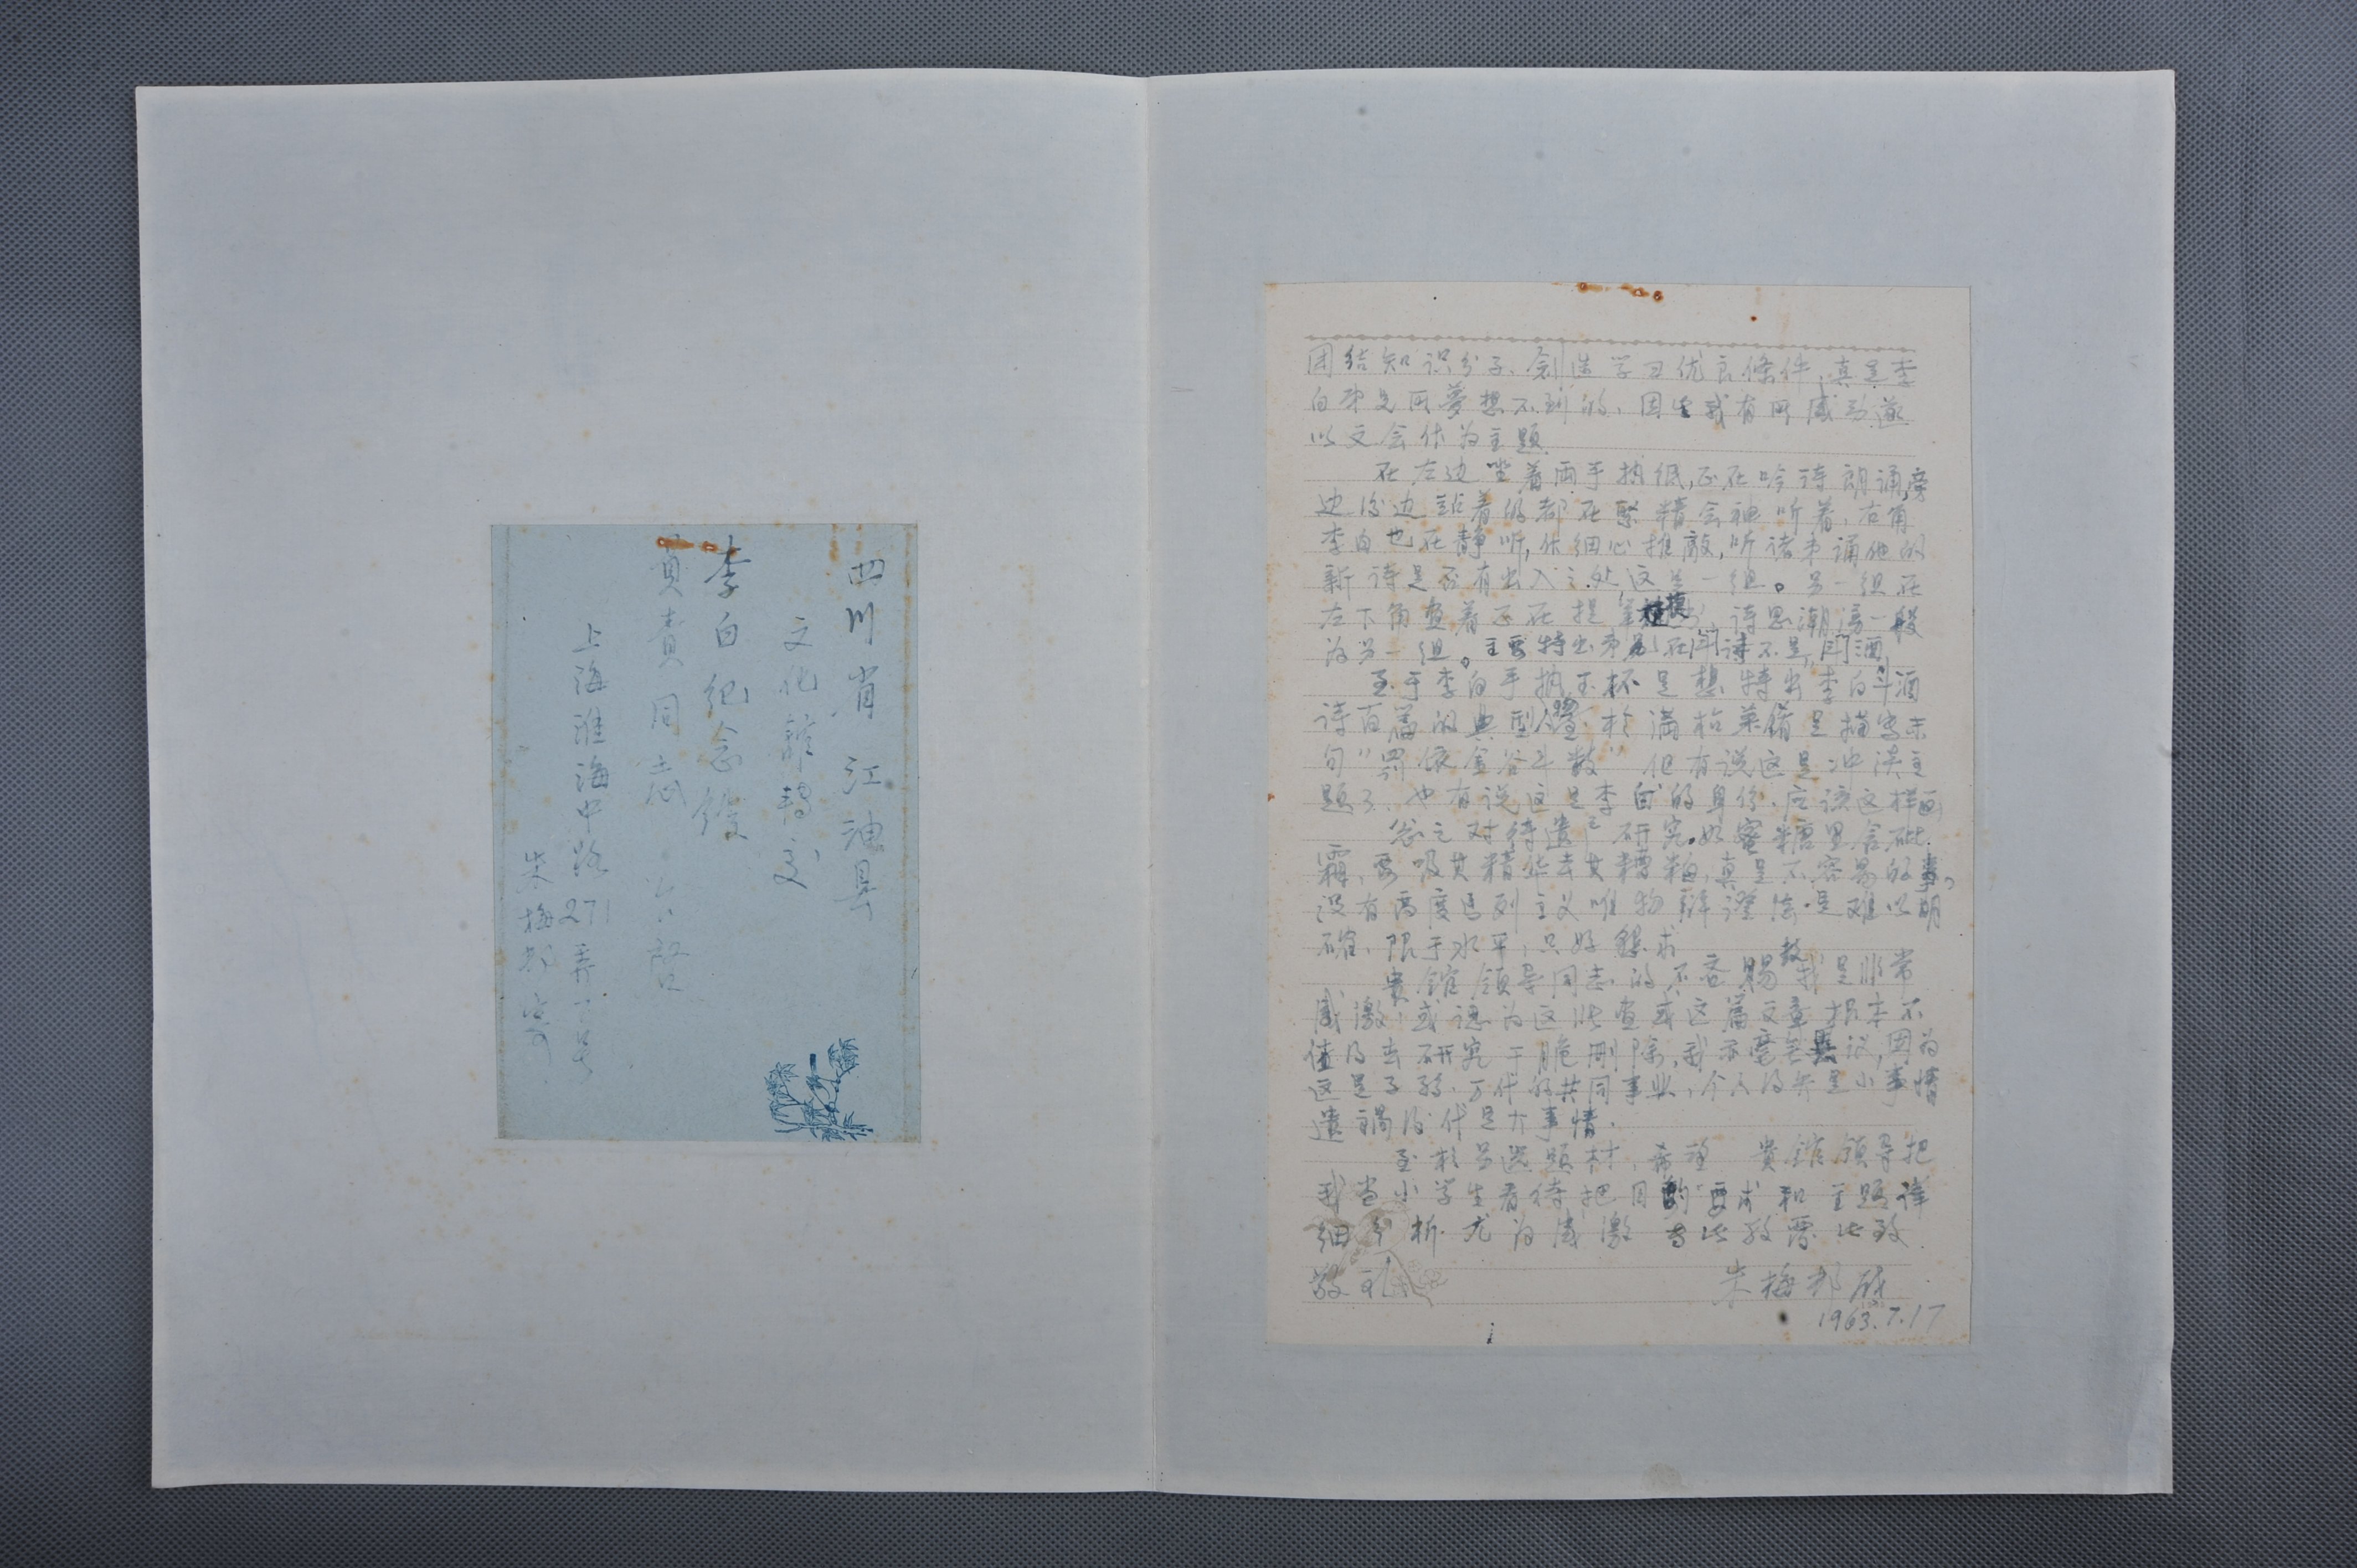 四川省江油县
文化館轉交
李白纪念館
負責同志 台啓
上海淮海中路271弄 号
朱梅邨寄
团结知识分子、創造学习优良條件,真是李
白弟兄所夢想不到的,因生我有所感动遂
以文会作为主题
在左边坐着两手执纸,正在吟诗朗诵,旁
边后边站着的都在聚精会神听着,右角
李白也在静听,作细心推敲,听诸弟诵他的
新诗是否有出入之处这是一组。另一组在
左下角 着 在提笔 ,诗思潮湧一般
为另一组。主要特出弟兄在鬥诗不是"鬥酒"
至于李白手执玉杯是想特出李白斗酒
诗百篇的典型人望,杯满枱菜餚是描写末
句"罰依金谷斗数"但有说这是冲淡主
题了、也有说这是李白的身份、应该这样画
总之对待遗 研究。如蜜糖里含砒
霜,要吸其精华去其糟粕,真是不容易的事,
没有高度马列主义唯物辯證法是难以明
确、限于水平,只好懇求
貴館領导同志的不吝賜教我是非常
感激,或認为这张畫或这篇文章根本不
值得去研究干脆刪除,我亦毫無異议,因为
这是子孫万代的共同事业,个人得失是小事情
遺禍后代是大事情.
至於另选題材,希望 貴館領导把
我当小学生看待把目的要求和主題详
细分析.尤为感激 专此敬覆 此致
敬礼 朱梅邨啟
1963.7.17